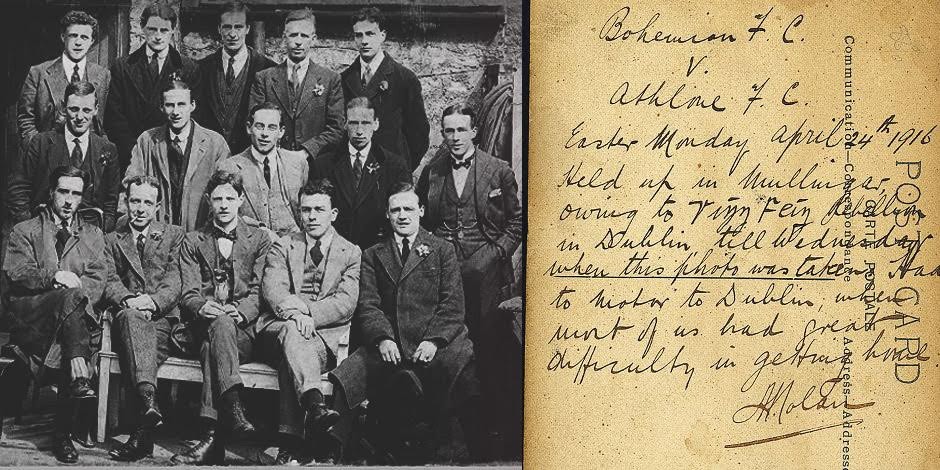 Bohemian F. C.
v.
Athlone F. C.
Easter Monday April 24th 1916
Held up in Mullingar,
owing to Sinn Fein Rebellion
in Dublin, till Wednesday
when this photo was taken. Had
to motor to Dublin, when
most of us had great
difficulty in getting home
Nolan
POST CARD
CARTE POSTALE
Communication—Correspondance
Address—Address